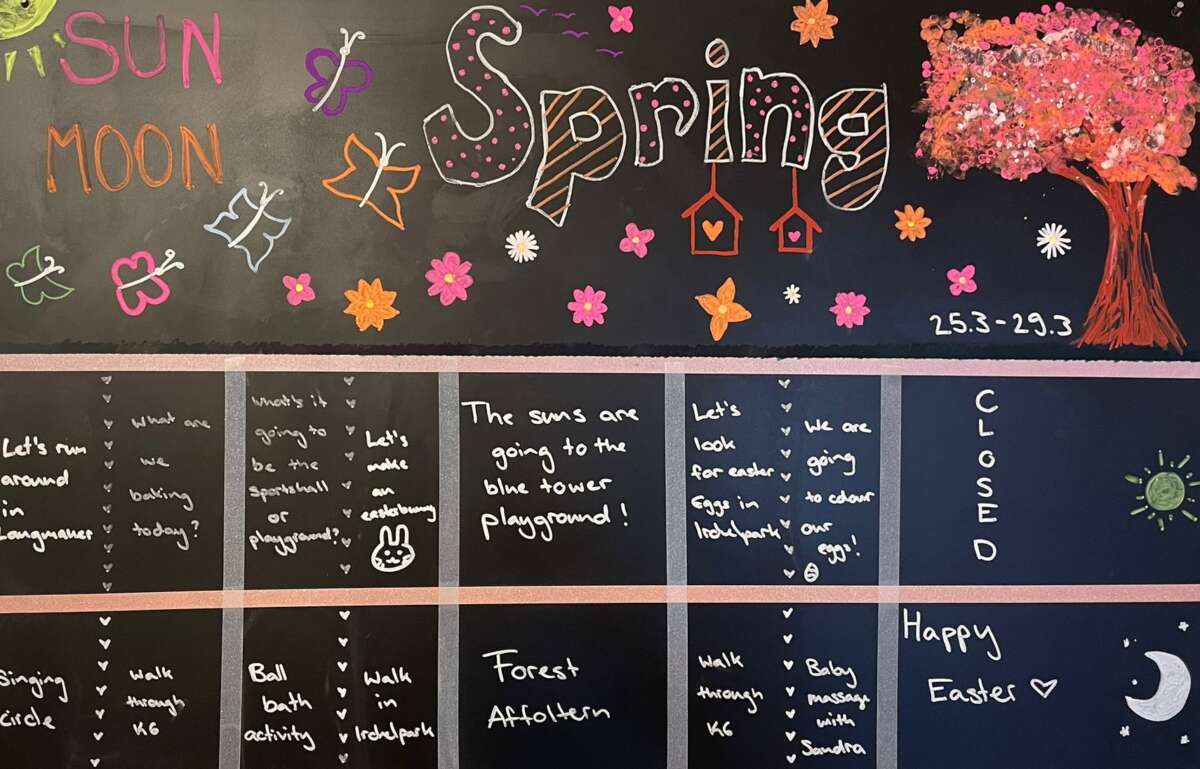 SUN
MOON
Spring
25.3-29.3
Let's run
around
in
Langmauer
What are
we
baking
today?
What's it
going to
be the
Sportshall
or
playground?
Let's
make
an
easterbunny
The suns are
going to the
blue tower
playground!
Let's
look
for easter
Eggs in
Irchelpark
We are
going
to colour
our
eggs!
C
L
O
S
E
D
Singing
circle
Walk
through
K6
Ball
bath
activity
Walk
in
Irchelpark
Forest
Affoltern
Walk
through
K6
Baby
massage
with
Sandra
Happy
Easter